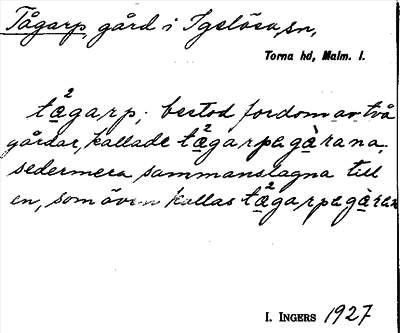 Tågarp, gård i Igelösa sn,
Torna hd, Malm. l.
tå̱²garp; bestod fordom av två
gårdar, kallade tå̱²garpagà̱rana,
sedermera sammanslagna till
en, som även kallas tå̱²garpagà̱rana
I. INGERS 1927